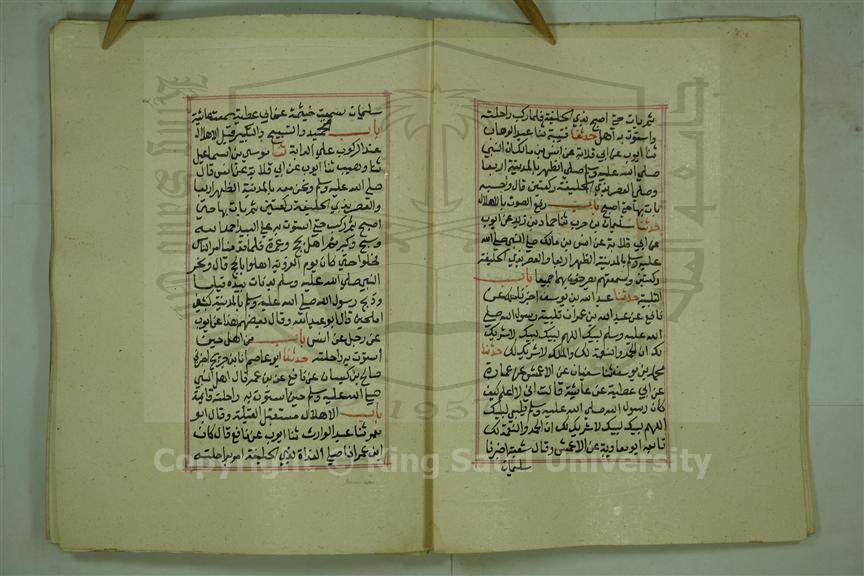 ثم بات حتى اصبح بذي الحليفة فلما ركب راحلته
واستوت به اهل حدثنا قتيبة ثنا عبد الوهاب
ثنا ايوب عن ابي قلابة عن انس بن مالك ان النبي
صلى الله عليه وسلم صلى الظهر بالمدينة اربعا
وصلى العصر بذي الحليفة ركعتين قال واحسبه
بات بها حتى اصبح باب رفع الصوت بالاهلال
حدثنا سليمان بن حرب ثنا حماد بن زيد عن ايوب
عن ابي قلابة عن انس بن مالك صلى النبي صلى الله
عليه وسلم بالمدينة الظهر اربعا والعصر بذي الحليفة
ركعتين وسمعتهم يصرخون بهما جميعا باب
التلبية حدثنا عبد الله بن يوسف اخبرنا مالك عن
نافع عن عبد الله بن عمر ان تلبية رسول الله صلى
الله عليه وسلم لبيك اللهم لبيك لبيك لا شريك
لك ان الحمد والنعمة لك والملك لا شريك لك حدثنا
محمد بن يوسف ثنا سفيان عن الاعمش عن عمارة
عن ابي عطية عن عائشة قالت اني لا علم كيف
كان رسول الله صلى الله عليه وسلم يلبي لبيك
اللهم لبيك لبيك لا شريك لك ان الحمد والنعمة لك
تابعه ابو معاوية عن الاعمش وقال شعبة اخبرنا
سليمان
سليمان سمعت خيثمة عن ابي عطية سمعت عائشة
باب التحميد والتسبيح والتكبير قبل الاهلال
عند الركوب على الدابة ثنا موسى بن اسماعيل
ثنا وهيب ثنا ايوب عن ابي قلابة عن انس قال
صلى الله عليه وسلم ونحن معه بالمدينة الظهر اربعا
والعصر بذي الحليفة ركعتين ثم بات بها حتى
اصبح ثم ركب حتى استوت به على البيداء حمد الله
وسبح وكبر ثم اهل بحج وعمرة فلما قدمنا امر الناس
فحلوا حتى كان يوم التروية اهلوا بالحج قال ونحر
النبي صلى الله عليه وسلم بدنات بيده قياما
وذبح رسول الله صلى الله عليه وسلم بالمدينة كبشين
املحين قال ابو عبد الله وقال بعضهم هذا عن ايوب
عن رجل عن انس باب من اهل حين
استوت به راحلته حدثنا ابو عاصم انا بن جريج اخبرني
صالح بن كيسان عن نافع عن بن عمر قال اهل النبي
صلى الله عليه وسلم حين استوت به راحلته قائمة
باب الاهلال مستقبل القبلة وقال ابو
معمر ثنا عبد الوارث ثنا ايوب عن نافع قال كان
بن عمر اذا صلى الغداة بذي الحليفة امر براحلته
Copyright © King Saud University
1957